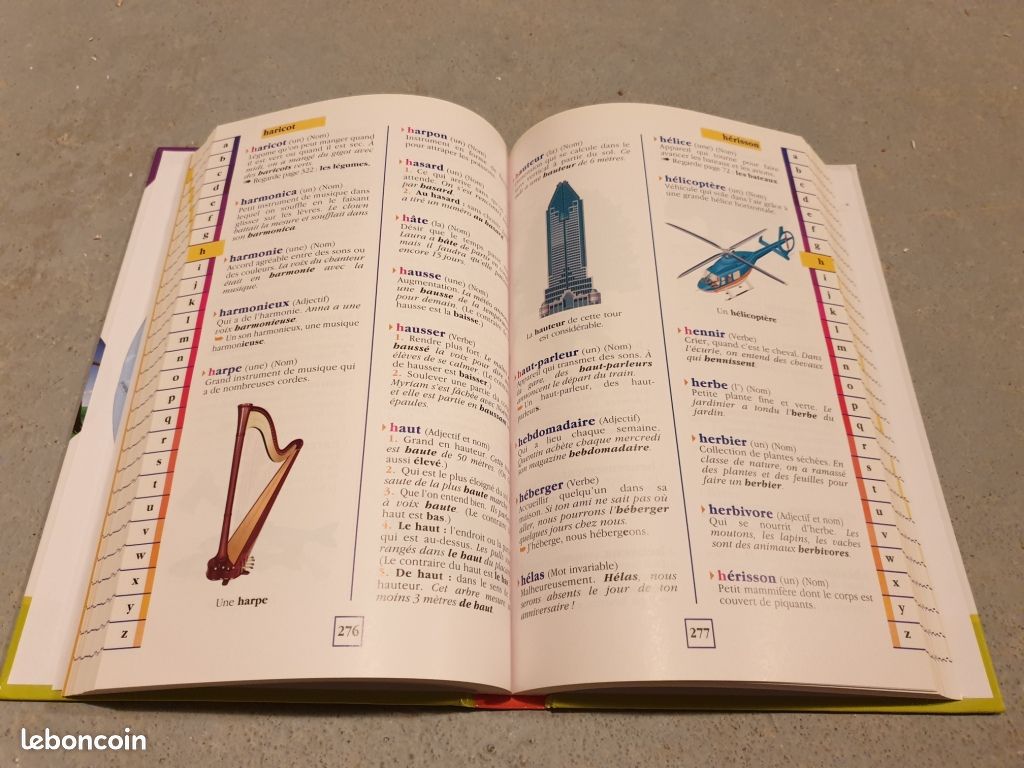 haricot
haricot (un) (Nom)
Légume qu'on peut manger quand
il est vert ou quand il est sec. À
midi, on a mangé du gigot avec
des haricots verts.
Regarde page 322 : les légumes.
harmonica (un) (Nom)
Petit instrument de musique dans
lequel on souffle en le faisant
glisser sur les lèvres. Le clown
battait la mesure et soufflait dans
son harmonica.
harmonie (une) (Nom)
Accord agréable entre des sons ou
des couleurs. La voix du chanteur
était en harmonie avec la
musique.
harmonieux (Adjectif)
Qui a de l'harmonie. Anna a une
voix harmonieuse.
Un son harmonieux, une musique
harmonieuse.
harpe (une) (Nom)
Grand instrument de musique qui
a de nombreuses cordes.
Une harpe
harpon (un) (Nom)
Instrument en forme de
pour attraper les
hasard (un) (Nom)
1. Ce qui arrive
attende. On s'est rencontré
par hasard.
2. Au hasard : sans
a tiré un numéro au hasard
hâte (la) (Nom)
Désir que le temps
Laura a hâte de partir
mais il faudra qu'elle
encore 15 jours.
hausse (une) (Nom)
Augmentation. La météo
une hausse de la
pour demain. (Le contraire
hausse est la baisse.)
hausser (Verbe)
1. Rendre plus fort. Le
haussé la voix pour
élèves de se calmer. (Le
de hausser est baisser.)
2. Soulever une partie du
Myriam s'est fâchée avec
et elle est partie en haussant
épaules.
haut (Adjectif et nom)
1. Grand en hauteur. Cette
est haute de 50 mètres. (On
aussi élevé.)
2. Qui est le plus éloigné du
saute de la plus haute
3. Que l'on entend bien. Ils
à voix haute. (Le contraire
haut est bas.)
4. Le haut : l'endroit ou la
qui est au-dessus. Les pulls
rangés dans le haut du
(Le contraire du haut est le
5. De haut : dans le sens
hauteur. Cet arbre mesure
moins 3 mètres de haut
276
a
b
c
d
e
f
g
h
i
j
k
l
m
n
o
p
q
r
s
t
u
v
w
x
y
z
hérisson
hauteur (la) (Nom)
se calcule dans le
à partir du sol. Ce
a une hauteur de 6 mètres.
La hauteur de cette tour
est considérable.
haut-parleur (un) (Nom)
Appareil qui transmet des sons. À
la gare, des haut-parleurs
annoncent le départ du train.
Un haut-parleur, des haut-
parleurs.
hebdomadaire (Adjectif)
Qui a lieu chaque semaine.
Quentin achète chaque mercredi
son magazine hebdomadaire.
héberger (Verbe)
Accueillir quelqu'un dans sa
maison. Si ton ami ne sait pas où
aller, nous pourrons l'héberger
quelques jours chez nous.
J'héberge, nous hébergeons.
hélas (Mot invariable)
Malheureusement. Hélas, nous
serons absents le jour de ton
anniversaire !
hélice (une) (Nom)
Appareil qui tourne pour faire
avancer les bateaux et les avions.
Regarde page 72 : les bateaux
hélicoptère (un) (Nom)
Véhicule qui vole dans l'air grâce à
une grande hélice horizontale.
Un hélicoptère
hennir (Verbe)
Crier, quand c'est le cheval. Dans
l'écurie, on entend des chevaux
qui hennissent.
herbe (l') (Nom)
Petite plante fine et verte. Le
jardinier a tondu l'herbe du
jardin.
herbier (un) (Nom)
Collection de plantes séchées. En
classe de nature, on a ramassé
des plantes et des feuilles pour
faire un herbier.
herbivore (Adjectif et nom)
Qui se nourrit d'herbe. Les
moutons, les lapins, les vaches
sont des animaux herbivores.
hérisson (un) (Nom)
Petit mammifère dont le corps est
couvert de piquants.
277
a
b
c
d
e
f
g
h
i
j
k
l
m
n
o
p
q
r
s
t
u
v
w
x
y
z
leboncoin